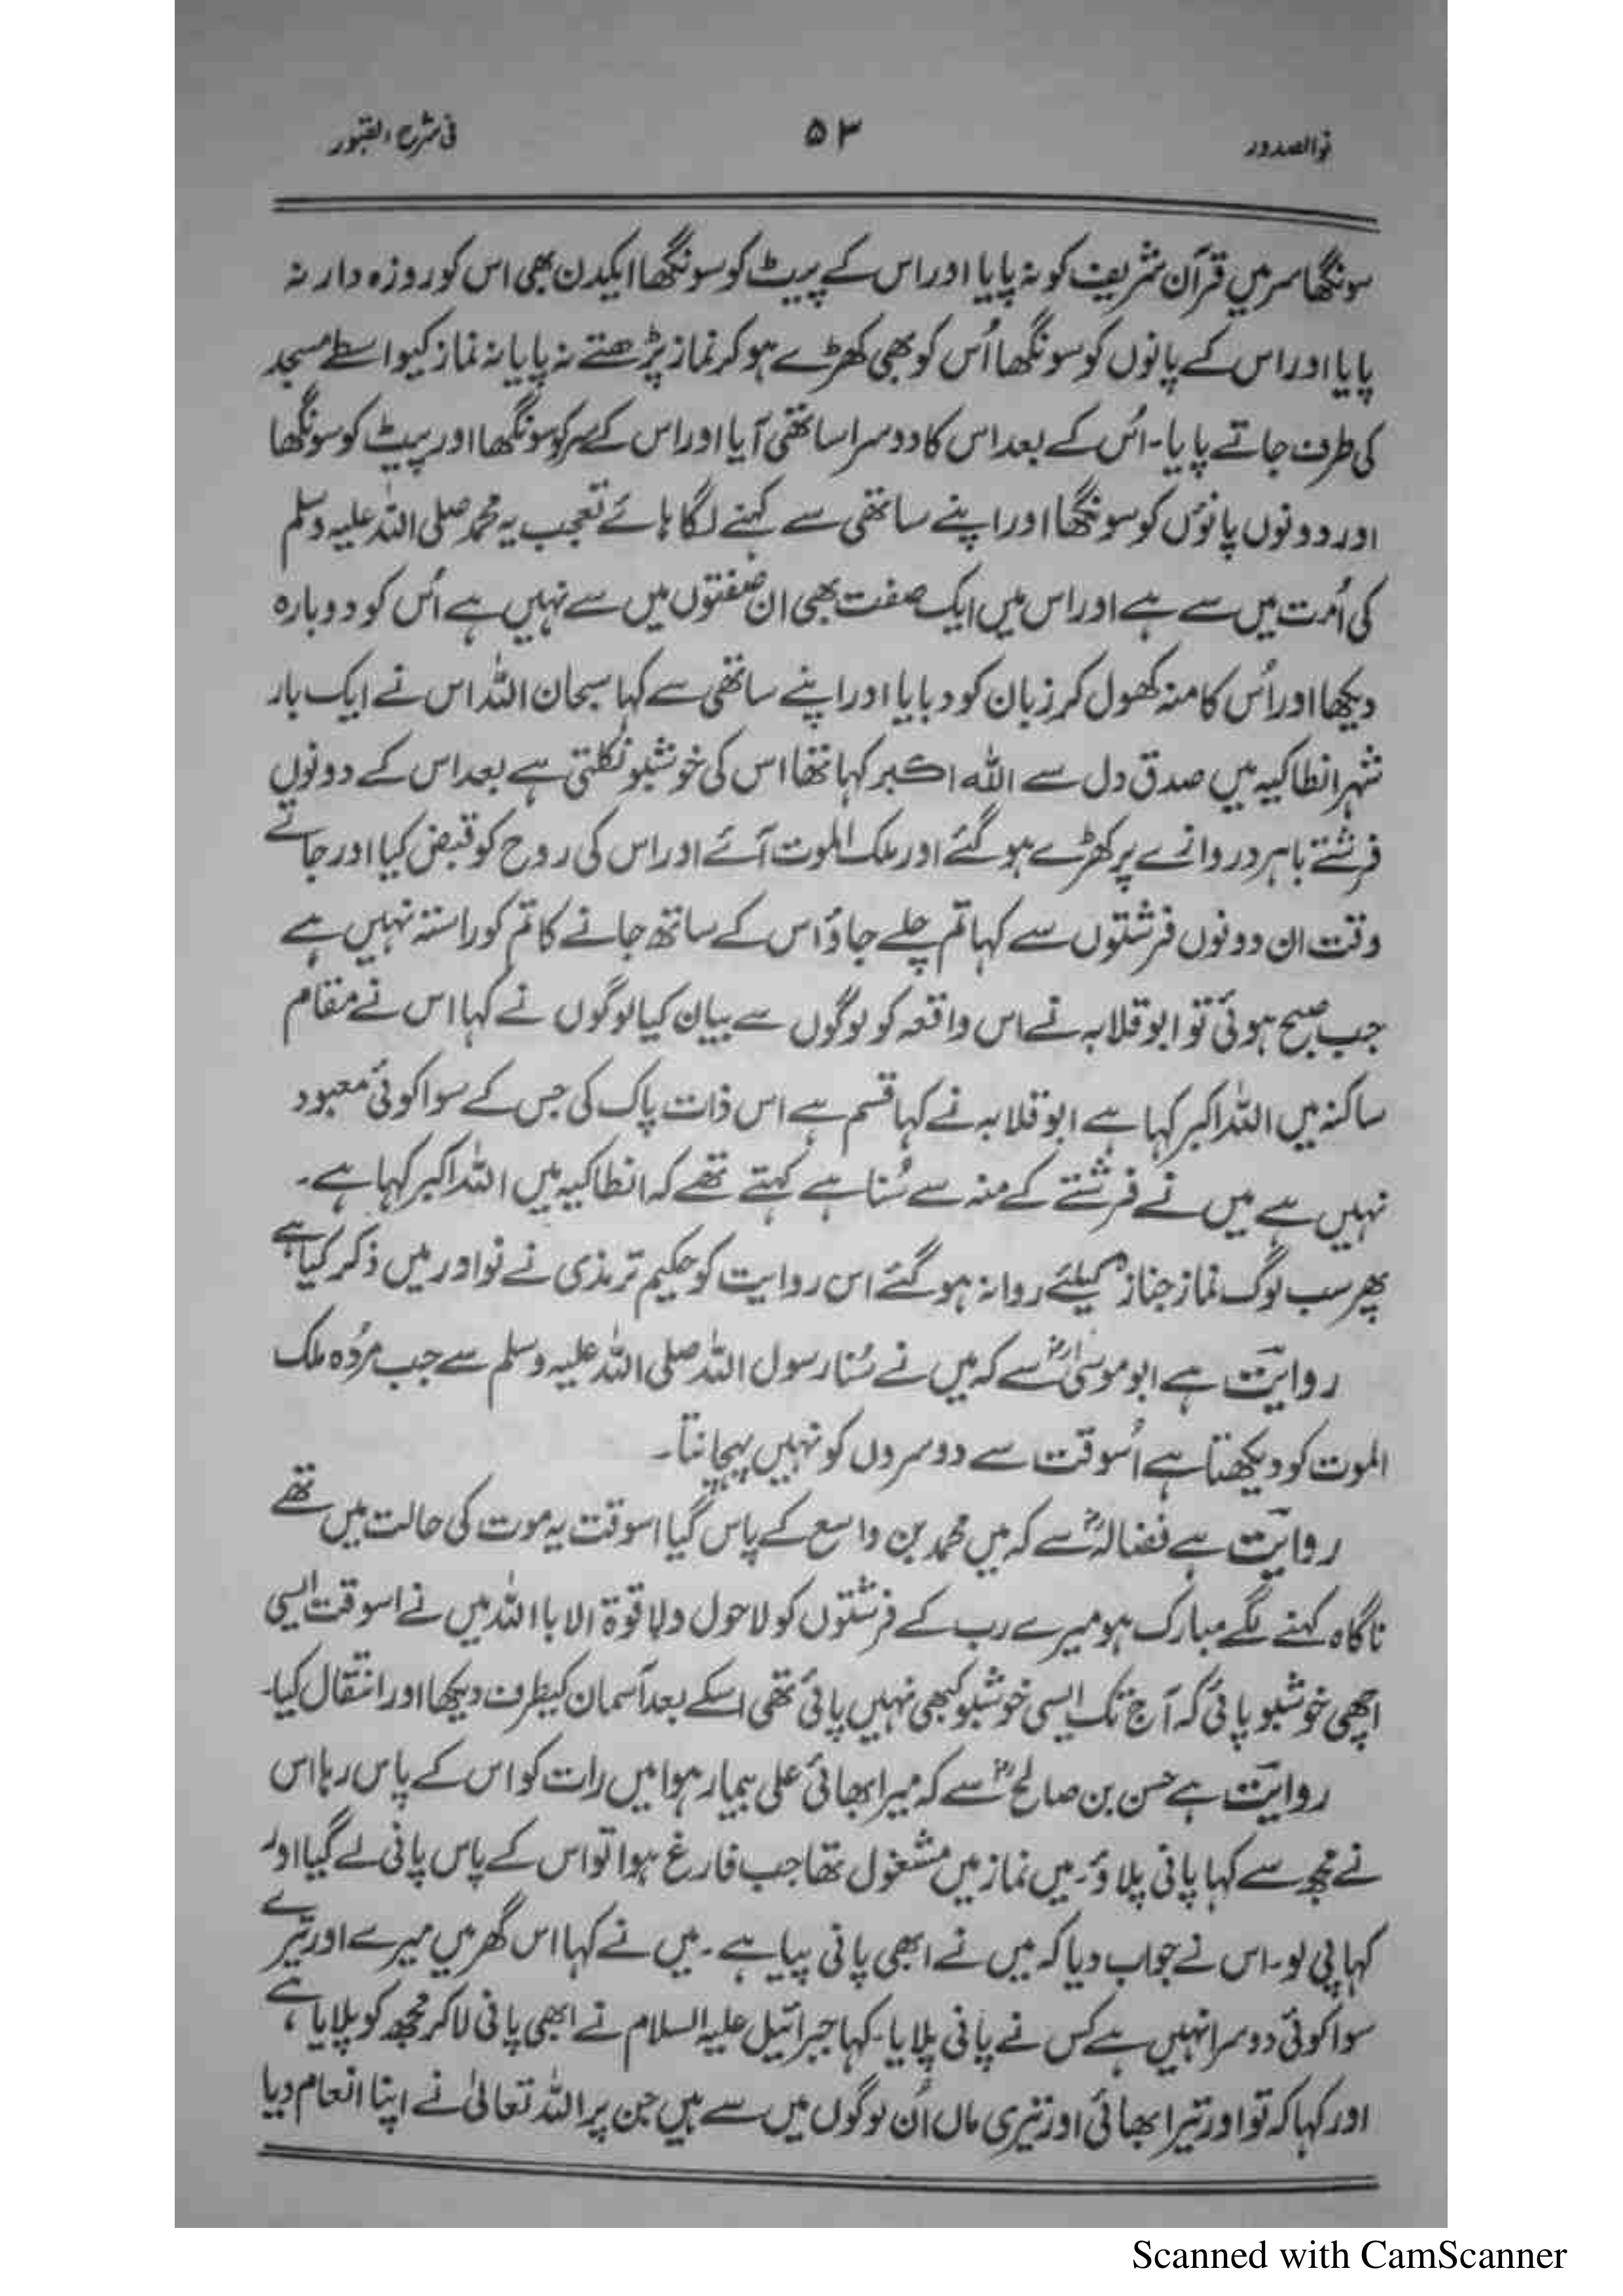 نور الصدور ۵۳ فی شرح القبور
سونگھا سر میں قرآن شریف کو نہ پایا اور اس کے پیٹ کو سونگھا ایکدن بھی اس کو روزہ دار نہ
پایا اور اس کے پانوں کو سونگھا اُس کو بھی کھڑے ہو کر نماز پڑھتے نہ پایا نہ نماز کیواسطے مسجد
کی طرف جاتے پایا۔ اُس کے بعد اس کا دوسرا ساتھی آیا اور اس کے سر کو سونگھا اور پیٹ کو سونگھا
اور دونوں پانوں کو سونگھا اور اپنے ساتھی سے کہنے لگا ہائے تعجب یہ محمد صلی اللہ علیہ وسلم
کی اُمت میں سے ہے اور اس میں ایک صفت بھی ان صفتوں میں سے نہیں ہے اُس کو دوبارہ
دیکھا اور اُس کا منہ کھول کر زبان کو دبایا اور اپنے ساتھی سے کہا سبحان اللہ اس نے ایک بار
شہر انطاکیہ میں صدق دل سے اللہ اکبر کہا تھا اس کی خوشبو نکلتی ہے بعد اس کے دونوں
فرشتے باہر دروازے پر کھڑے ہو گئے اور ملک الموت آئے اور اس کی روح کو قبض کیا اور جاتے
وقت ان دونوں فرشتوں سے کہا تم چلے جاؤ اس کے ساتھ جانے کا تم کو راستہ نہیں ہے
جب صبح ہوئی تو ابو قلابہ نے اس واقعہ کو لوگوں سے بیان کیا لوگوں نے کہا اس نے مقام
ساکنہ میں اللہ اکبر کہا ہے ابو قلابہ نے کہا قسم ہے اس ذات پاک کی جس کے سوا کوئی معبود
نہیں ہے میں نے فرشتے کے منہ سے سُنا ہے کہتے تھے کہ انطاکیہ میں اللہ اکبر کہا ہے۔
پھر سب لوگ نماز جنازہ کیلئے روانہ ہو گئے اس روایت کو حکیم ترمذی نے نوادر میں ذکر کیا ہے
روایت ہے ابو موسیٰؓ سے کہ میں نے سُنا رسول اللہ صلی اللہ علیہ وسلم سے جب مُردہ ملک
الموت کو دیکھتا ہے اُسوقت سے دوسروں کو نہیں پہچانتا۔
روایت ہے فضالہؒ سے کہ میں محمد بن واسع کے پاس گیا اسوقت یہ موت کی حالت میں تھے
ناگاہ کہنے لگے مبارک ہو میرے رب کے فرشتوں کو لاحول ولا قوۃ الا باللہ میں نے اسوقت ایسی
اچھی خوشبو پائی کہ آج تک ایسی خوشبو کبھی نہیں پائی تھی اسکے بعد آسمان کیطرف دیکھا اور انتقال کیا۔
روایت ہے حسن بن صالحؒ سے کہ میرا بھائی علی بیمار ہوا میں رات کو اس کے پاس رہا اس
نے مجھ سے کہا پانی پلاؤ۔ میں نماز میں مشغول تھا جب فارغ ہوا تو اس کے پاس پانی لے گیا اور
کہا پی لو۔ اس نے جواب دیا کہ میں نے ابھی پانی پیا ہے۔ میں نے کہا اس گھر میں میرے اور تیرے
سوا کوئی دوسرا نہیں ہے کس نے پانی پلایا۔ کہا جبرائیل علیہ السلام نے ابھی پانی لا کر مجھ کو پلایا ہے،
اور کہا کہ تو اور تیرا بھائی اور تیری ماں اُن لوگوں میں سے ہیں جن پر اللہ تعالیٰ نے اپنا انعام دیا
Scanned with CamScanner